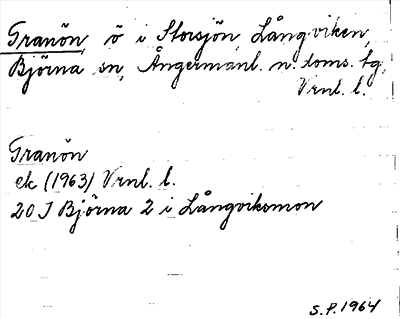 Granön, ö i Storsjön, Långviken,
Björna sn, Ångermanl. n. doms. tg,
Vrnl. l.
Granön
ek (1963) Vrnl. l.
20 J Björna 2 i Långvikomon
S.P. 1964